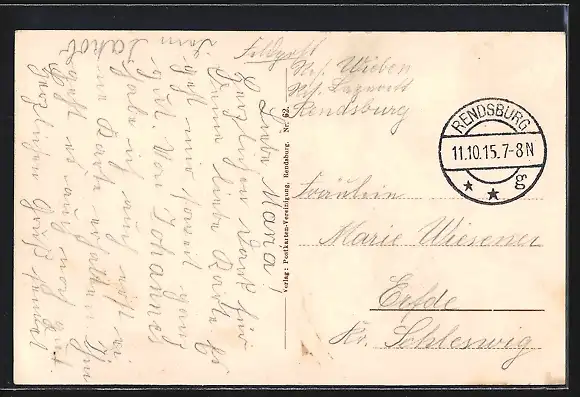 Feldpost
Ref. Wieben
Res. Lazarett
Rendsburg
RENDSBURG
11.10.15.7-8N
* * gg
Fräulein
Marie Wiesener
Erfde
Kr. Schleswig
Verlag: Postkarten-Vereinigung, Rendsburg. Nr. 62.
Liebe Maria!
Herzlichen Dank für
Deine liebe Karte Es
geht mir soweit ganz
gut. Von Johannes
habe ich auch
ne Karte erhalten Ihm
geht es auch noch gut.
Herzlichen Gruß sendet
Dein Jakob